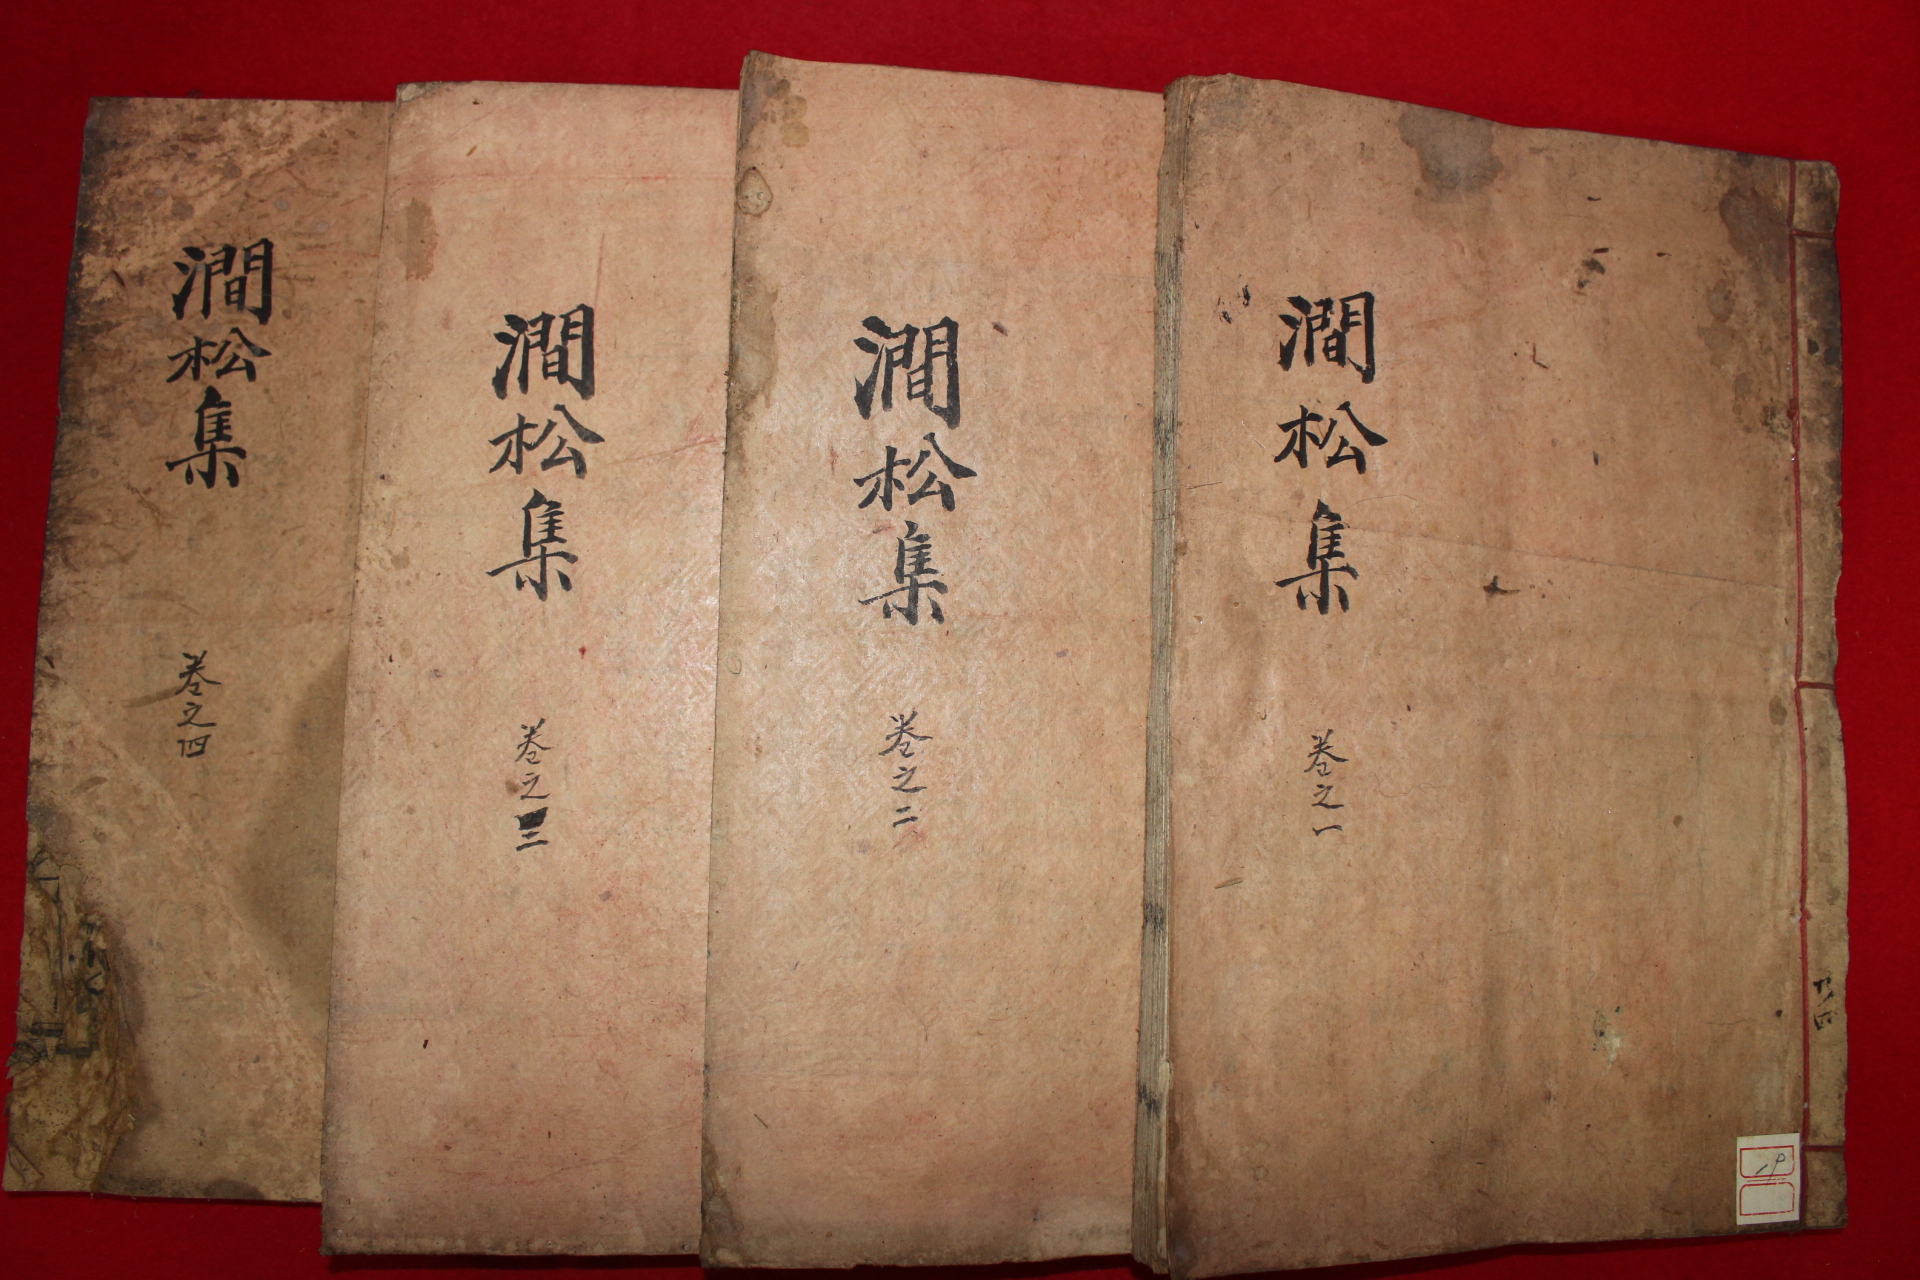 澗松集
卷之一
澗松集
卷之二
澗松集
卷之三
澗松集
卷之四
共四